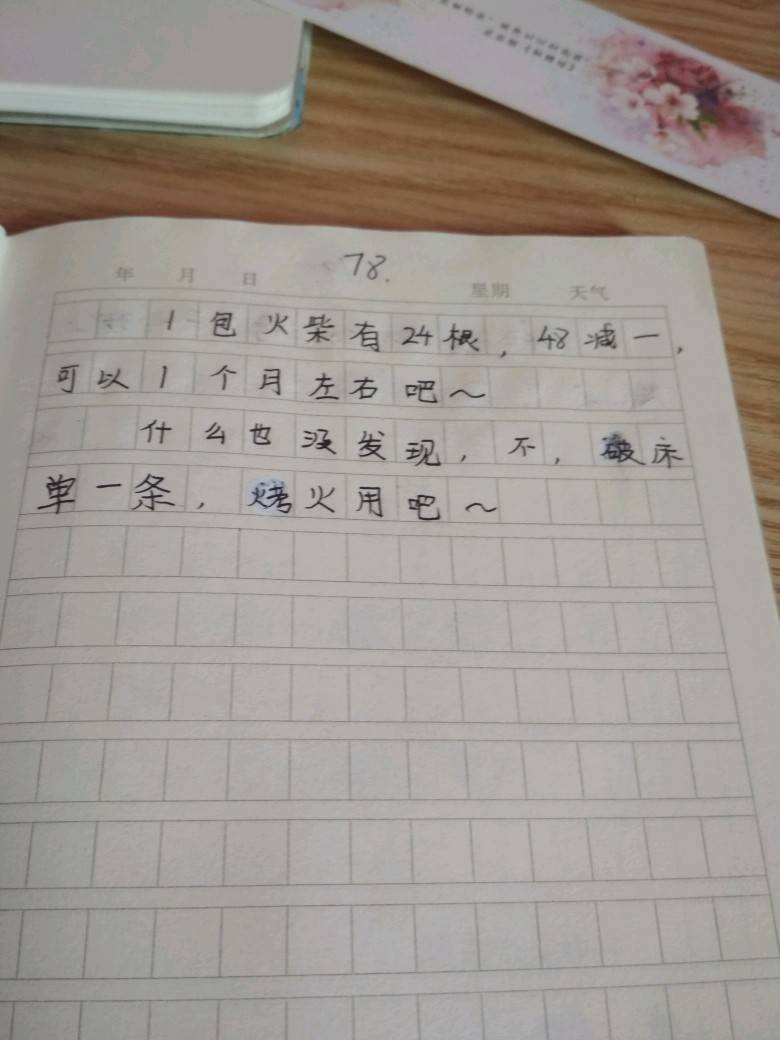 78.
年 月 日 星期 天气
1包火柴有24根，48减一，
可以1个月左右吧～
什么也没发现，不，破床
单一条，烤火用吧～